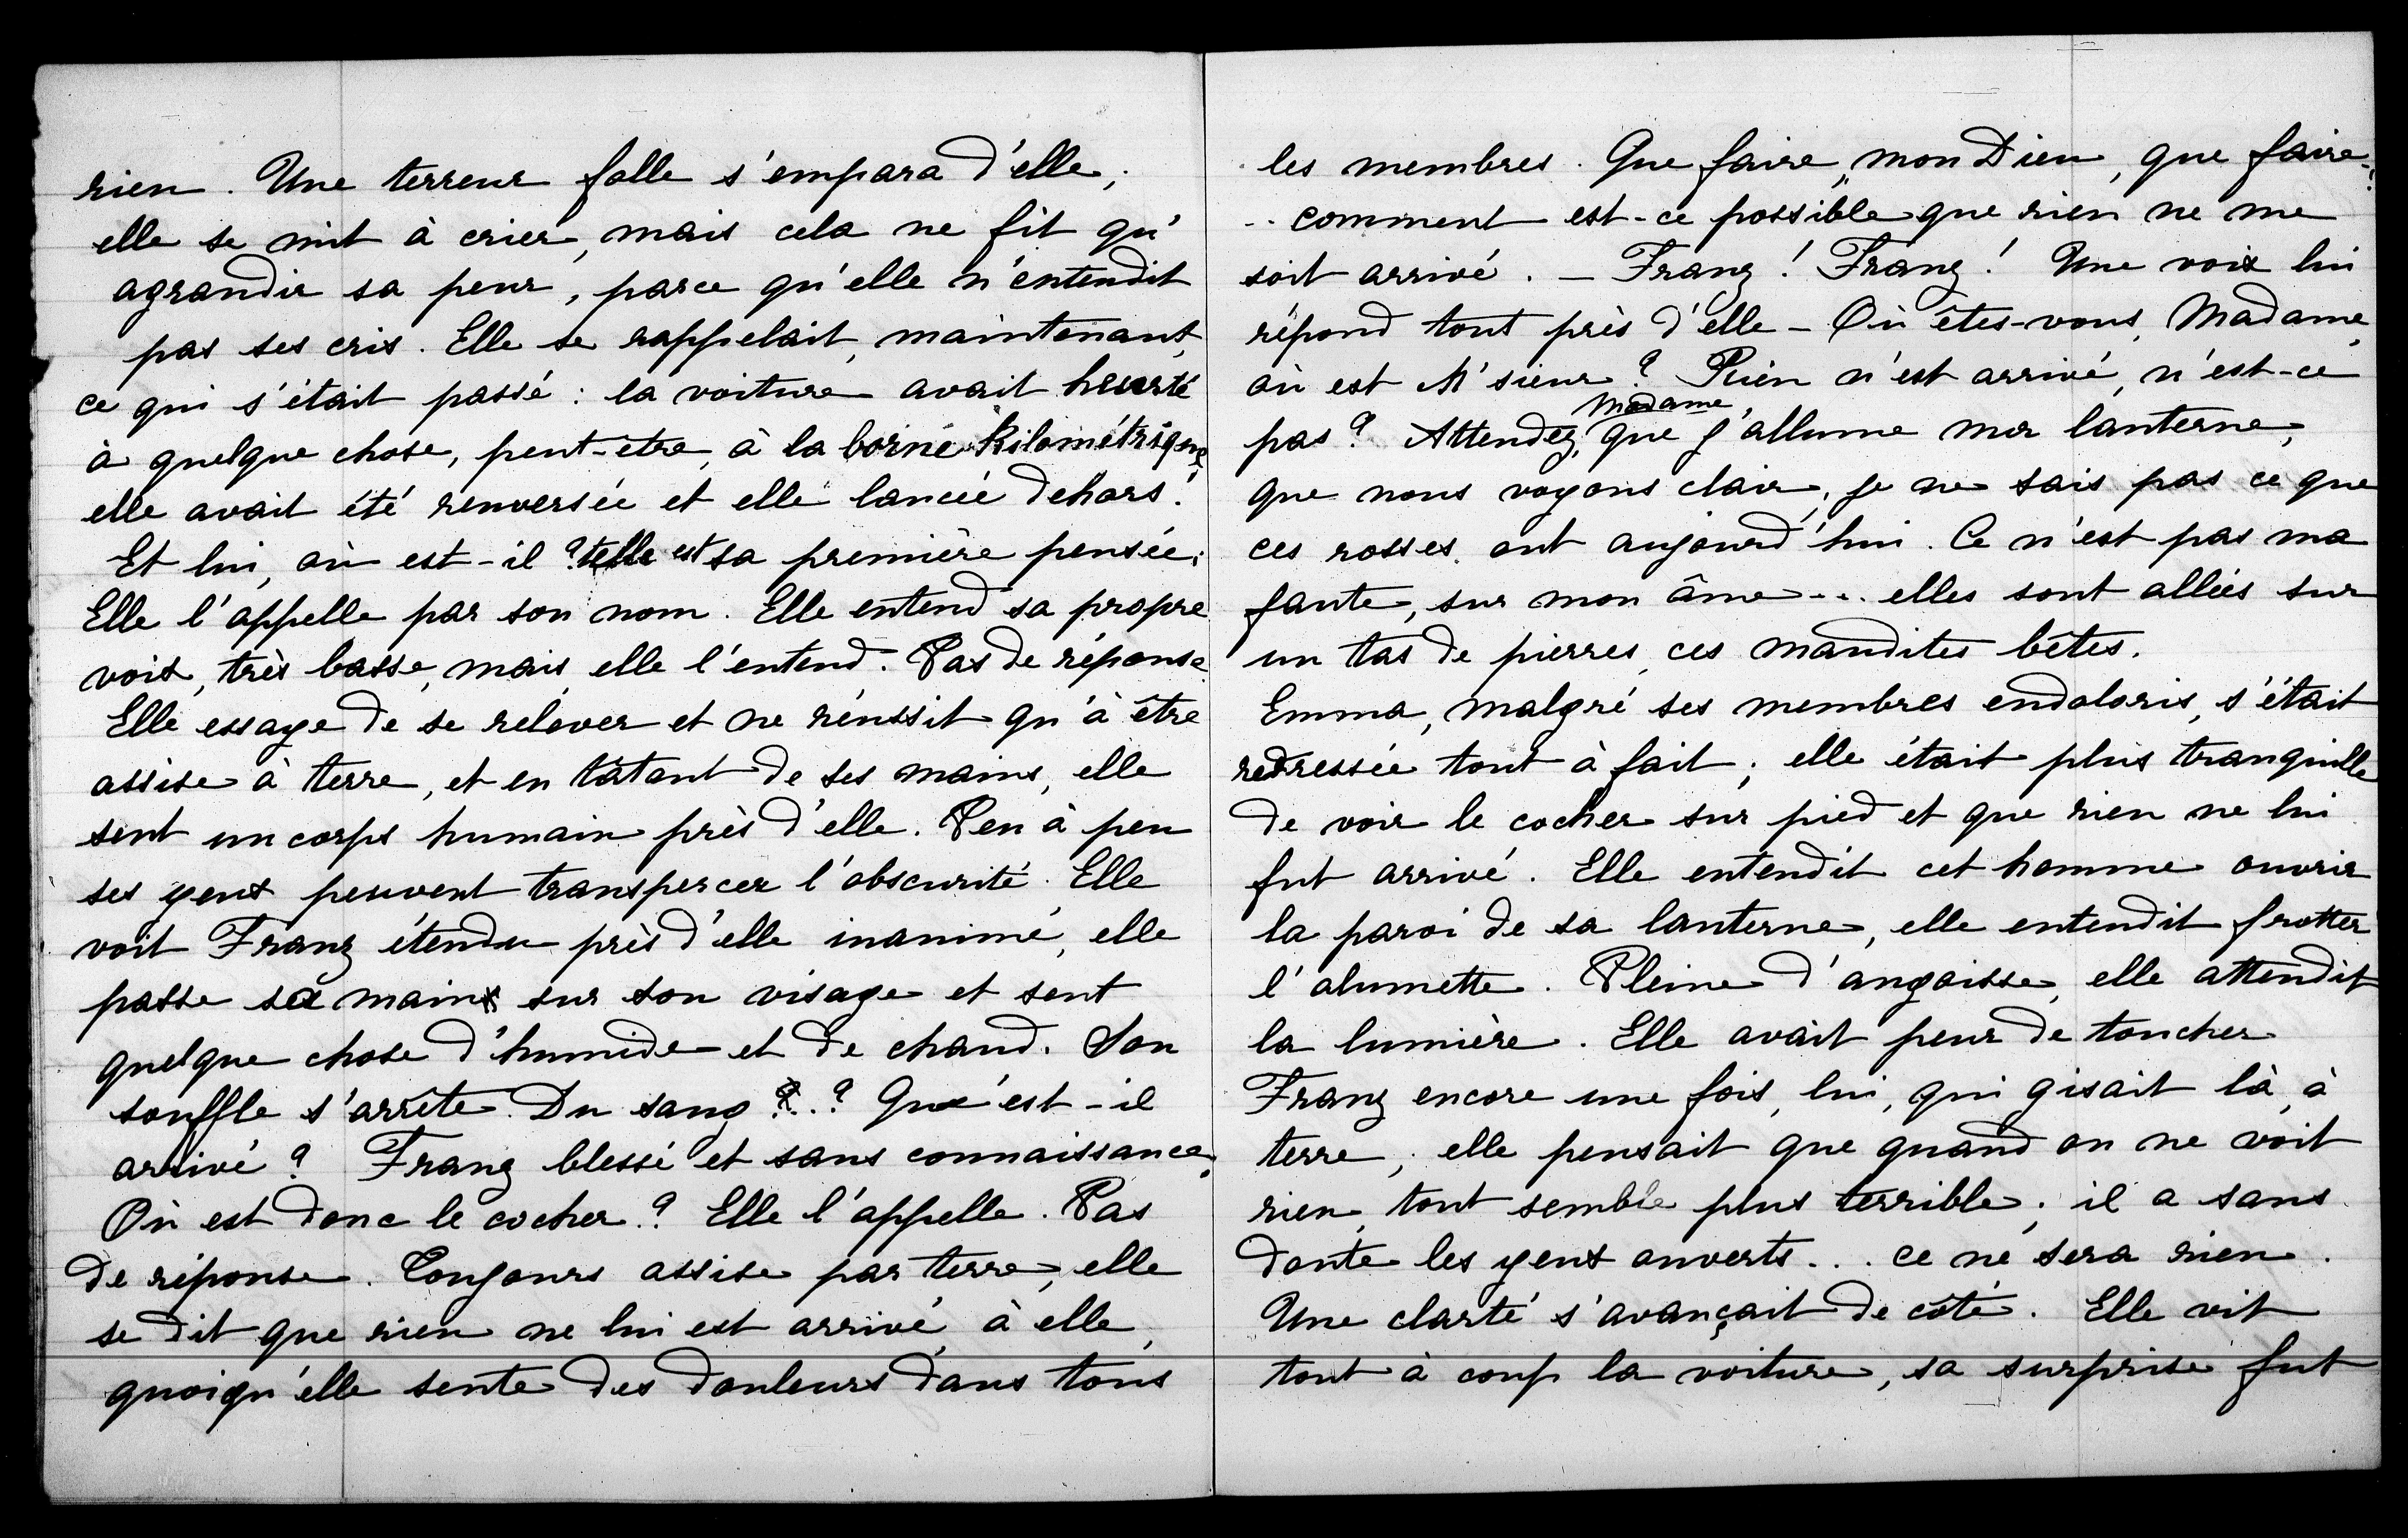 rien. Une terreur folle s'empara d'elle;
elle se mit à crier, mais cela ne fit qu'
agrandir sa peur, parce qu'elle n'entendit
pas ses cris. Elle se rappelait, maintenant,
ce qui s'était passé: la voiture avait heurté
à quelque chose, peut-être, à la borne kilométrique,
elle avait été renversée et elle lancée dehors.
Et lui, où est-il? telle est sa première pensée.
Elle l'appelle par son nom. Elle entend sa propre
voix, très basse, mais elle l'entend. Pas de réponse.
Elle essaye de se relever et ne réussit qu'à être
assise à terre, et en tâtant de ses mains, elle
sent un corps humain près d'elle. Peu à peu
ses yeux peuvent transpercer l'obscurité. Elle
voit Franz étendu près d'elle inanimé, elle
passe sa main sur son visage et sent
quelque chose d'humide et de chaud. Son
souffle s'arrête. Du sang..? Qu'est-il
arrivé? Franz blessé et sans connaissance.
Où est donc le cocher? Elle l'appelle. Pas
de réponse. Toujours assise par terre, elle
se dit que rien ne lui est arrivé, à elle,
quoiqu'elle sente des douleurs dans tous
les membres. Que faire, mon Dieu, que faire..
.. comment est-ce possible que rien ne me
soit arrivé. - Franz! Franz! Une voix lui
répond tout près d'elle - Où êtes-vous, Madame,
où est M'sieur? Rien n'est arrivé, n'est-ce
pas? Attendez, Madame, que j'allume ma lanterne,
que nous voyons clair, je ne sais pas ce que
ces rosses ont aujourd'hui. Ce n'est pas ma
faute, sur mon âme... elles sont allées sur
un tas de pierres, ces maudites bêtes.
Emma, malgré ses membres endoloris, s'était
redressée tout à fait; elle était plus tranquille
de voir le cocher sur pied et que rien ne lui
fut arrivé. Elle entendit cet homme ouvrir
la paroi de sa lanterne, elle entendit frotter
l'alumette. Pleine d'angoisse, elle attendit
la lumière. Elle avait peur de toucher
Franz encore une fois, lui, qui gisait là, à
terre; elle pensait que quand on ne voit
rien, tout semble plus terrible; il a sans
doute les yeux ouverts... ce ne sera rien.
Une clarté s'avançait de côté. Elle vit
tout à coup la voiture, sa surprise fut